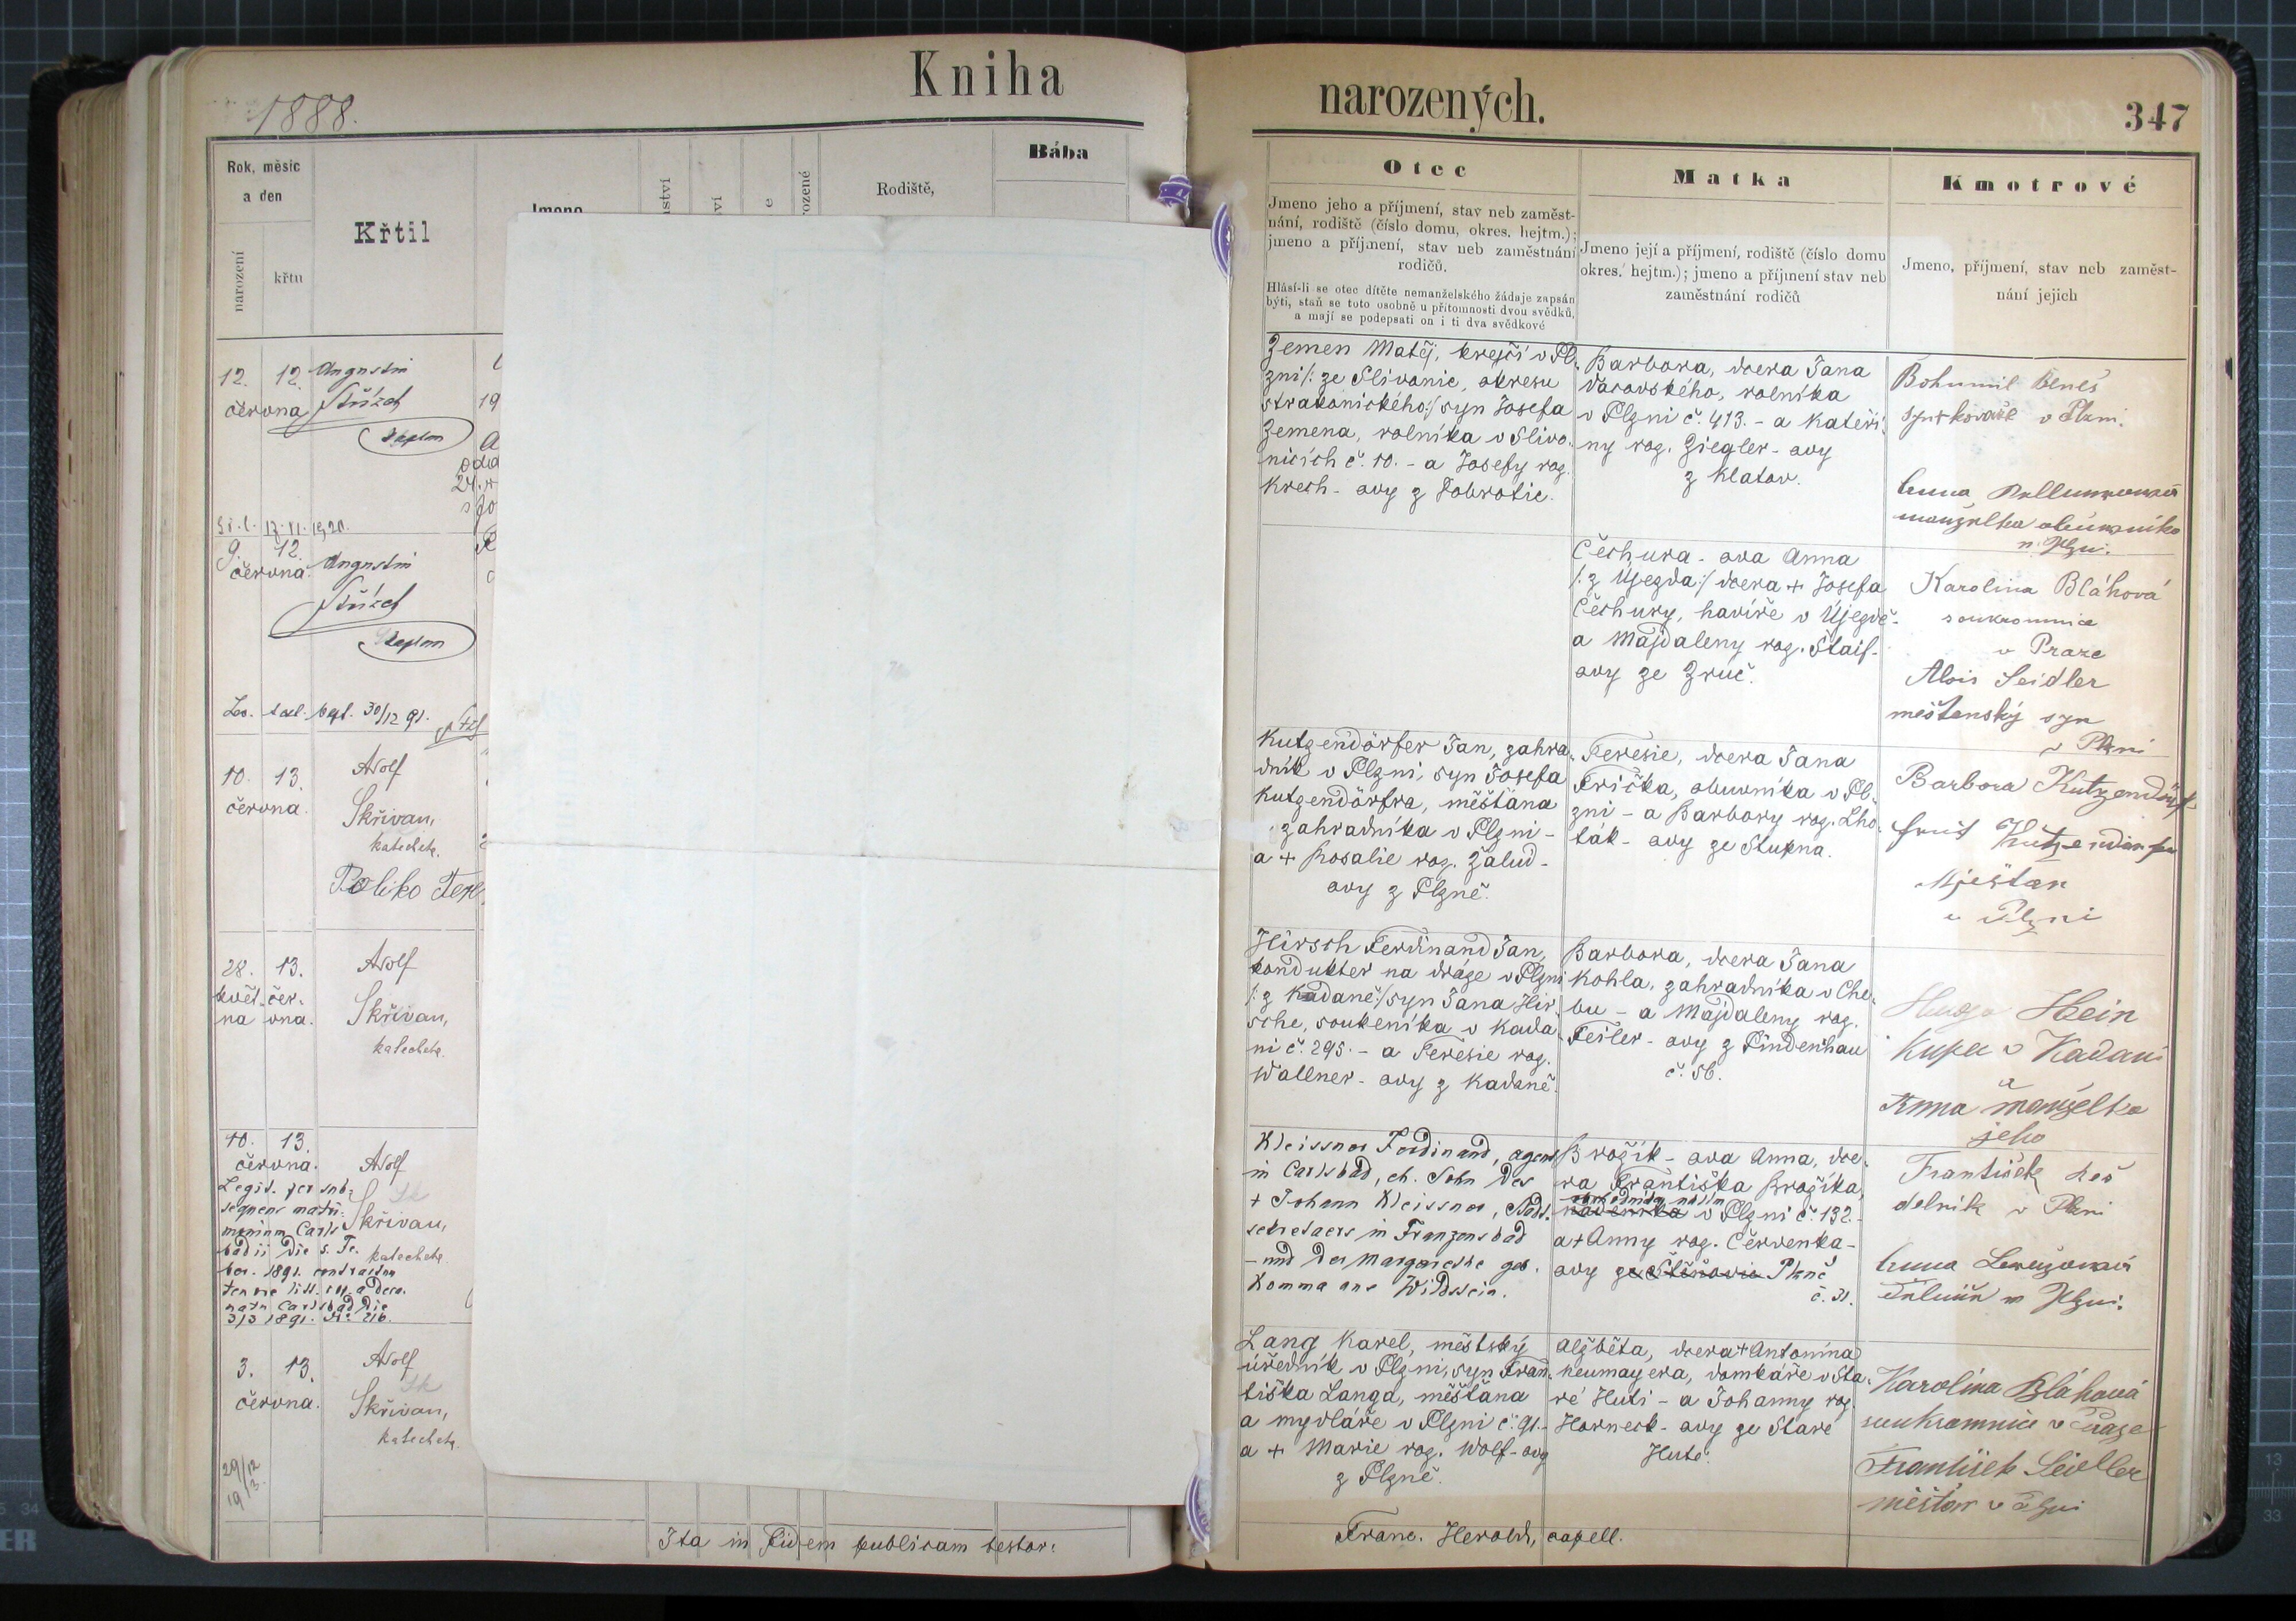 Kniha
narozených.
1888.
347
Rok, měsíc
a den
narození
křtu
Křtil
Jmeno
Rodiště,
Bába
Otec
Jmeno jeho a příjmení, stav neb zaměst-
nání, rodiště (číslo domu, okres. hejtm.);
jmeno a příjmení, stav neb zaměstnání
rodičů.
Hlásí-li se otec dítěte nemanželského žádaje zapsán
býti, staň se toto osobně u přítomnosti dvou svědků,
a mají se podepsati on i ti dva svědkové
Matka
Jmeno její a příjmení, rodiště (číslo domu
okres. hejtm.); jmeno a příjmení stav neb
zaměstnání rodičů
Kmotrové
Jmeno, příjmení, stav neb zaměst-
nání jejich
12. 12. Augustin
června
19
kaplan
Zemen Matěj, krejčí v Pl-
zni /: ze Slivonic, okresu
strakonického:/ syn Josefa
Zemena, rolníka v Slivo-
nicích č. 10. - a Josefy roz.
Krech- ovy z Dobrotic.
Barbora, dcera Jana
rolníka
v Plzni č. 413. - a Kateři-
ny roz. Ziegler- ovy
z Klatov.
Bohumil Beneš
v Plzni.
Anna
manželka obuvníka
v Plzni.
9. 12. Augustin
června.
kaplan
30/12 91.
Čechura- ova Anna
/: z Újezda:/ dcera + Josefa
Čechury, havíře v Újezdě-
a Majdaleny roz. Staif-
ovy ze Zruč.
Karolina Bláhová
soukromnice
v Praze
Alois Seidler
měštanský syn
v Plzni
10. 13. Adolf
června.
Skřivan,
katecheta.
Kutzendörfer Jan, zahra-
dník v Plzni, syn Josefa
Kutzendörfra, měšťana
zahradníka v Plzni -
a + Rosalie roz. Žalud-
ovy z Plzně.
Teresie, dcera Jana
Trička, obuvníka v Pl-
zni - a Barbory roz. Lho-
ták- ovy ze Stupna.
Barbora
Mještan
v Plzni
28. 13. Adolf
květ- čer-
na vna.
Skřivan,
katecheta.
Hirsch Ferdinand Jan,
kondukter na dráze v Plzni
/: z Kadaně:/ syn Jana Hir-
sche, soukeníka v Kada-
ni č. 295. - a Teresie roz.
Wallner- ovy z Kadaně.
Barbora, dcera Jana
Kohla, zahradníka v Che-
bu - a Majdaleny roz.
Feiler- ovy z Pindenhau
č. 56.
Hugo Hein
Kupec v Kadani
Anna manželka
jeho
10. 13. Adolf
června.
Legit. per sub-
sequens matri-
monium Carls-
bad ii die
1891.
Carlsbad die
3/3 1891. No. 216.
Skřivan,
katecheta
Kleissner Ferdinand, agent
in Carlsbad, eh. Sohn des
+ Johann Kleissner, Stadt-
sekretaers in Franzensbad
- und der Margarethe geb.
Komma aus Wildstein.
Brožík- ova Anna, dce-
ra Františka Brožíka,
nádeníka v Plzni č. 132. -
a + Anny roz. Červenka-
ovy ze Plzně
č. 31.
František
dělník v Plzni
Anna
v Plzni.
3. 13. Adolf
června.
Skřivan,
katecheta.
29/12
19 13.
Lang Karel, městský
úředník v Plzni, syn Fran-
tiška Langa, měšťana
a mydláře v Plzni č. 91. -
a + Marie roz. Wolf- ovy
z Plzně.
Alžběta, dcera + Antonína
Neumayera, domkáře v Sta-
ré Huti - a Johanny roz.
Horneck- ovy ze Staré
Hutě.
Karolina Bláhová
soukromnice v Praze
František Seidler
měšťan v Plzni
Ita in fidem publicam testor:
Franc. Herold, capell.